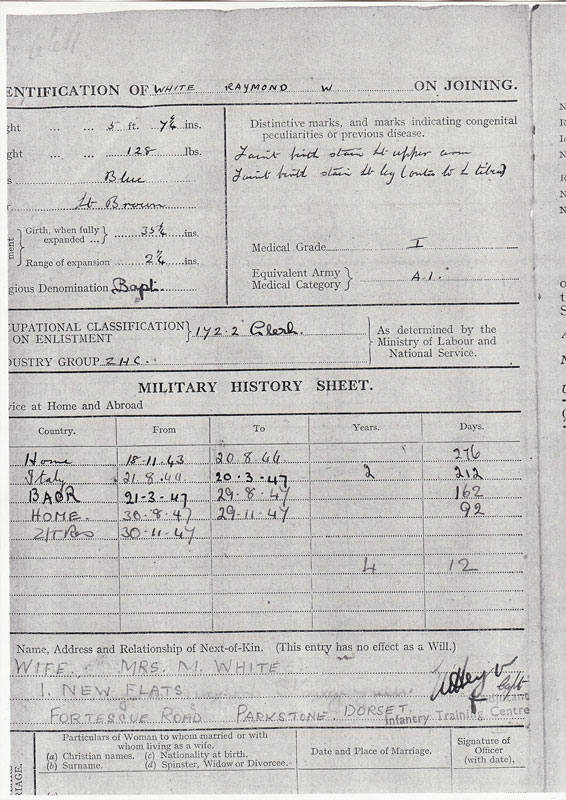 ENTIFICATION OF WHITE RAYMOND W ON JOINING.
ght ... ... 5 ft. 7¼ ins.
ght ... ... 128 lbs.
s Blue
r Lt Brown
ment
Girth, when fully expanded ... 35¼ ins.
Range of expansion 2¼ ins.
gious Denomination Bapt.
Distinctive marks, and marks indicating congenital
peculiarities or previous disease.
Faint birth stain Lt upper arm
Faint birth stain Lt leg (outer to L tibia)
Medical Grade I
Equivalent Army
Medical Category A.1.
CUPATIONAL CLASSIFICATION
ON ENLISTMENT 172.2 Clerk.
DUSTRY GROUP ZHC.
As determined by the
Ministry of Labour and
National Service.
MILITARY HISTORY SHEET.
vice at Home and Abroad
Country. From To Years. Days.
Home 18.11.43 20.8.44 276
Italy 21.8.44 20.3.47 2 212
BAOR 21-3-47 29-8-47 162
HOME. 30-8-47 29-11-47 92
30-11-47
4 12
Name, Address and Relationship of Next-of-Kin. (This entry has no effect as a Will.)
WIFE. MRS. M. WHITE
1. NEW FLATS
FORTESCUE ROAD PARKSTONE, DORSET.
Capt
Infantry Training Centre
RIAGE.
Particulars of Woman to whom married or with
whom living as a wife.
(a) Christian names. (c) Nationality at birth.
(b) Surname. (d) Spinster, Widow or Divorcee.
Date and Place of Marriage.
Signature of
Officer
(with date).